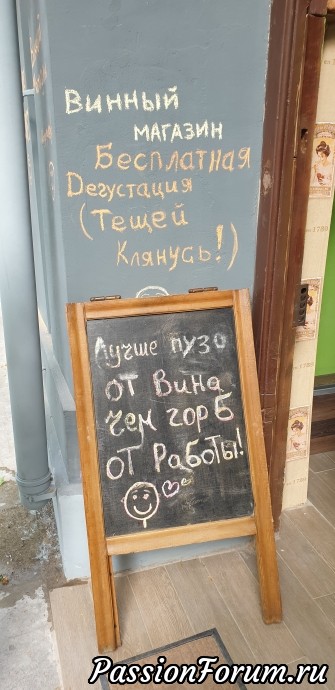 Винный
магазин
Бесплатная
Дегустация
(Тещей
Клянусь!)
Лучше пузо
от Вина
чем горб
от Работы!
PassionForum.ru